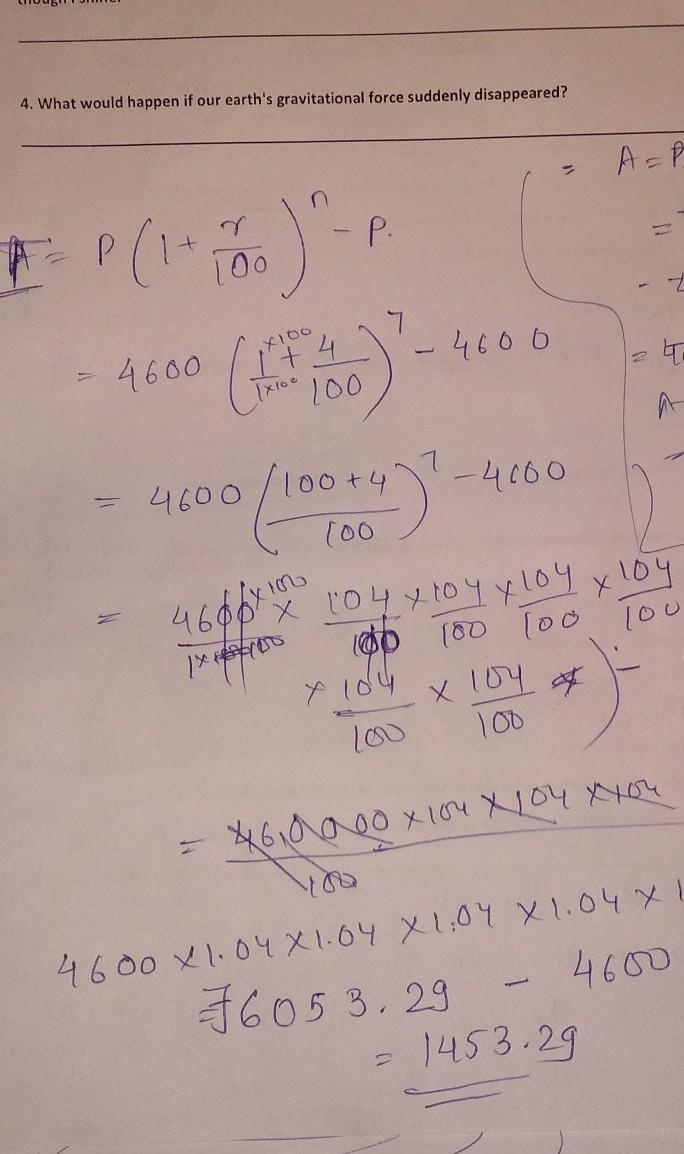 4. What would happen if our earth's gravitational force suddenly disappeared?
= A = P
= P (1 + r/100)^n - P.
= 4600 (1×100/1×100 + 4/100)^7 - 4600
= 4600 (100+4/100)^7 - 4600
= 4600×100/1× × 104/100 × 104/100 × 104/100 × 104/100
× 104/100 × 104/100 ) -
= 46,0000 × 104 × 104 × 104
100
4600 × 1.04 × 1.04 × 1.04 × 1.04 × 1
= 6053.29 - 4600
= 1453.29